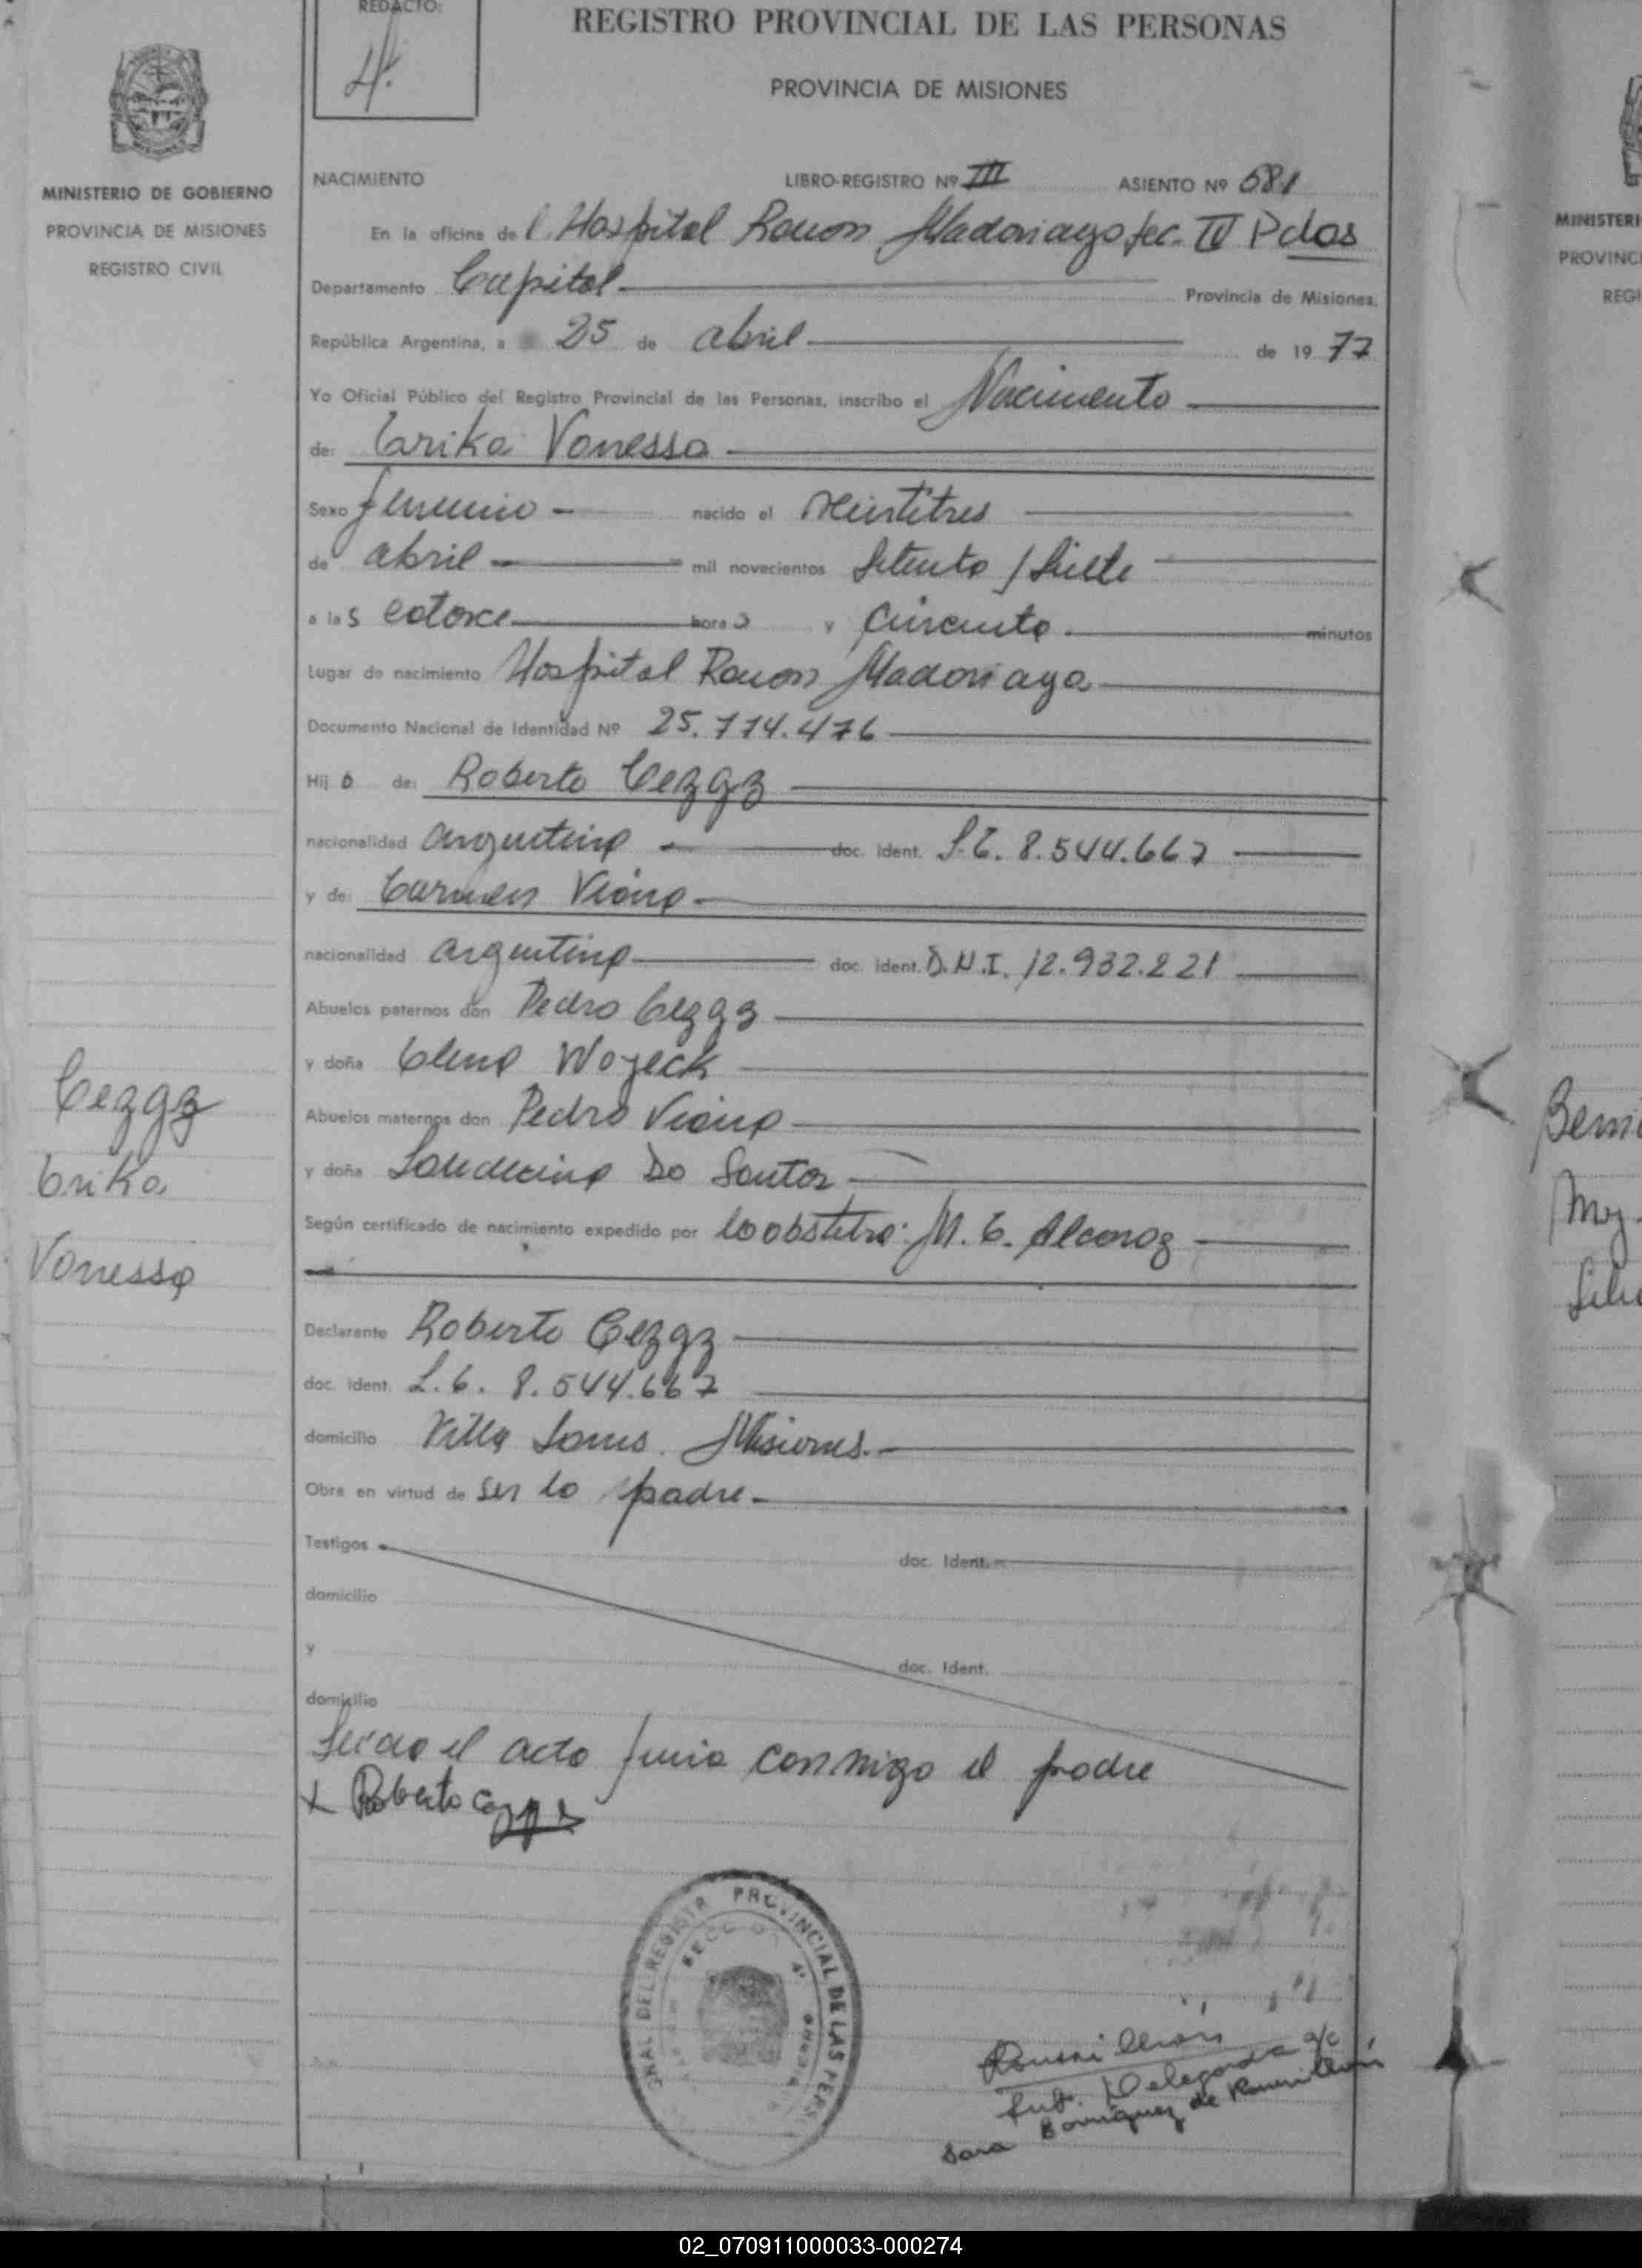 REDACTO:
REGISTRO PROVINCIAL DE LAS PERSONAS
PROVINCIA DE MISIONES
MINISTERIO DE GOBIERNO
PROVINCIA DE MISIONES
REGISTRO CIVIL
NACIMIENTO LIBRO-REGISTRO Nº III ASIENTO Nº 681
En la oficina de l Hospital Ramon Madariaga sec. IV Pdas
Departamento Capital Provincia de Misiones,
República Argentina, a 25 de abril de 19 77
Yo Oficial Público del Registro Provincial de las Personas, inscribo el Nacimiento
de: Erika Vanessa
Sexo femenino nacido el veintitres
de abril mil novecientos setenta y siete
a las catorce horas y cincuenta minutos
Lugar de nacimiento Hospital Ramon Madariaga
Documento Nacional de Identidad Nº 25.774.476
Hij a de: Roberto Cezgz
nacionalidad argentina doc. ident. L.E. 8.544.667
y de: Carmen Viana
nacionalidad argentina doc. ident. D.N.I. 12.932.221
Abuelos paternos don Pedro Cezgz
y doña Elena Woyeck
Abuelos maternos don Pedro Viana
y doña Do Santos
Según certificado de nacimiento expedido por la obstetra: M. E. Alcaraz
Declarante Roberto Cezgz
doc. ident. L.E. 8.544.667
domicilio Villa Misiones.
Obra en virtud de ser lo padre
Testigos doc. ident.
domicilio
y doc. ident.
domicilio
Leido el acto firma conmigo el padre
x Roberto
Cezgz
Erika
Vanessa
PROVINCIAL DE LAS PERS
GRAL DEL REGISTR
Sub. Delegada a/c
Sara de
MINISTERI
PROVINC
REGI
02_070911000033-000274